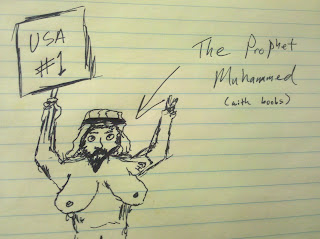 USA
#1
The Prophet
Muhammed
(with boobs)